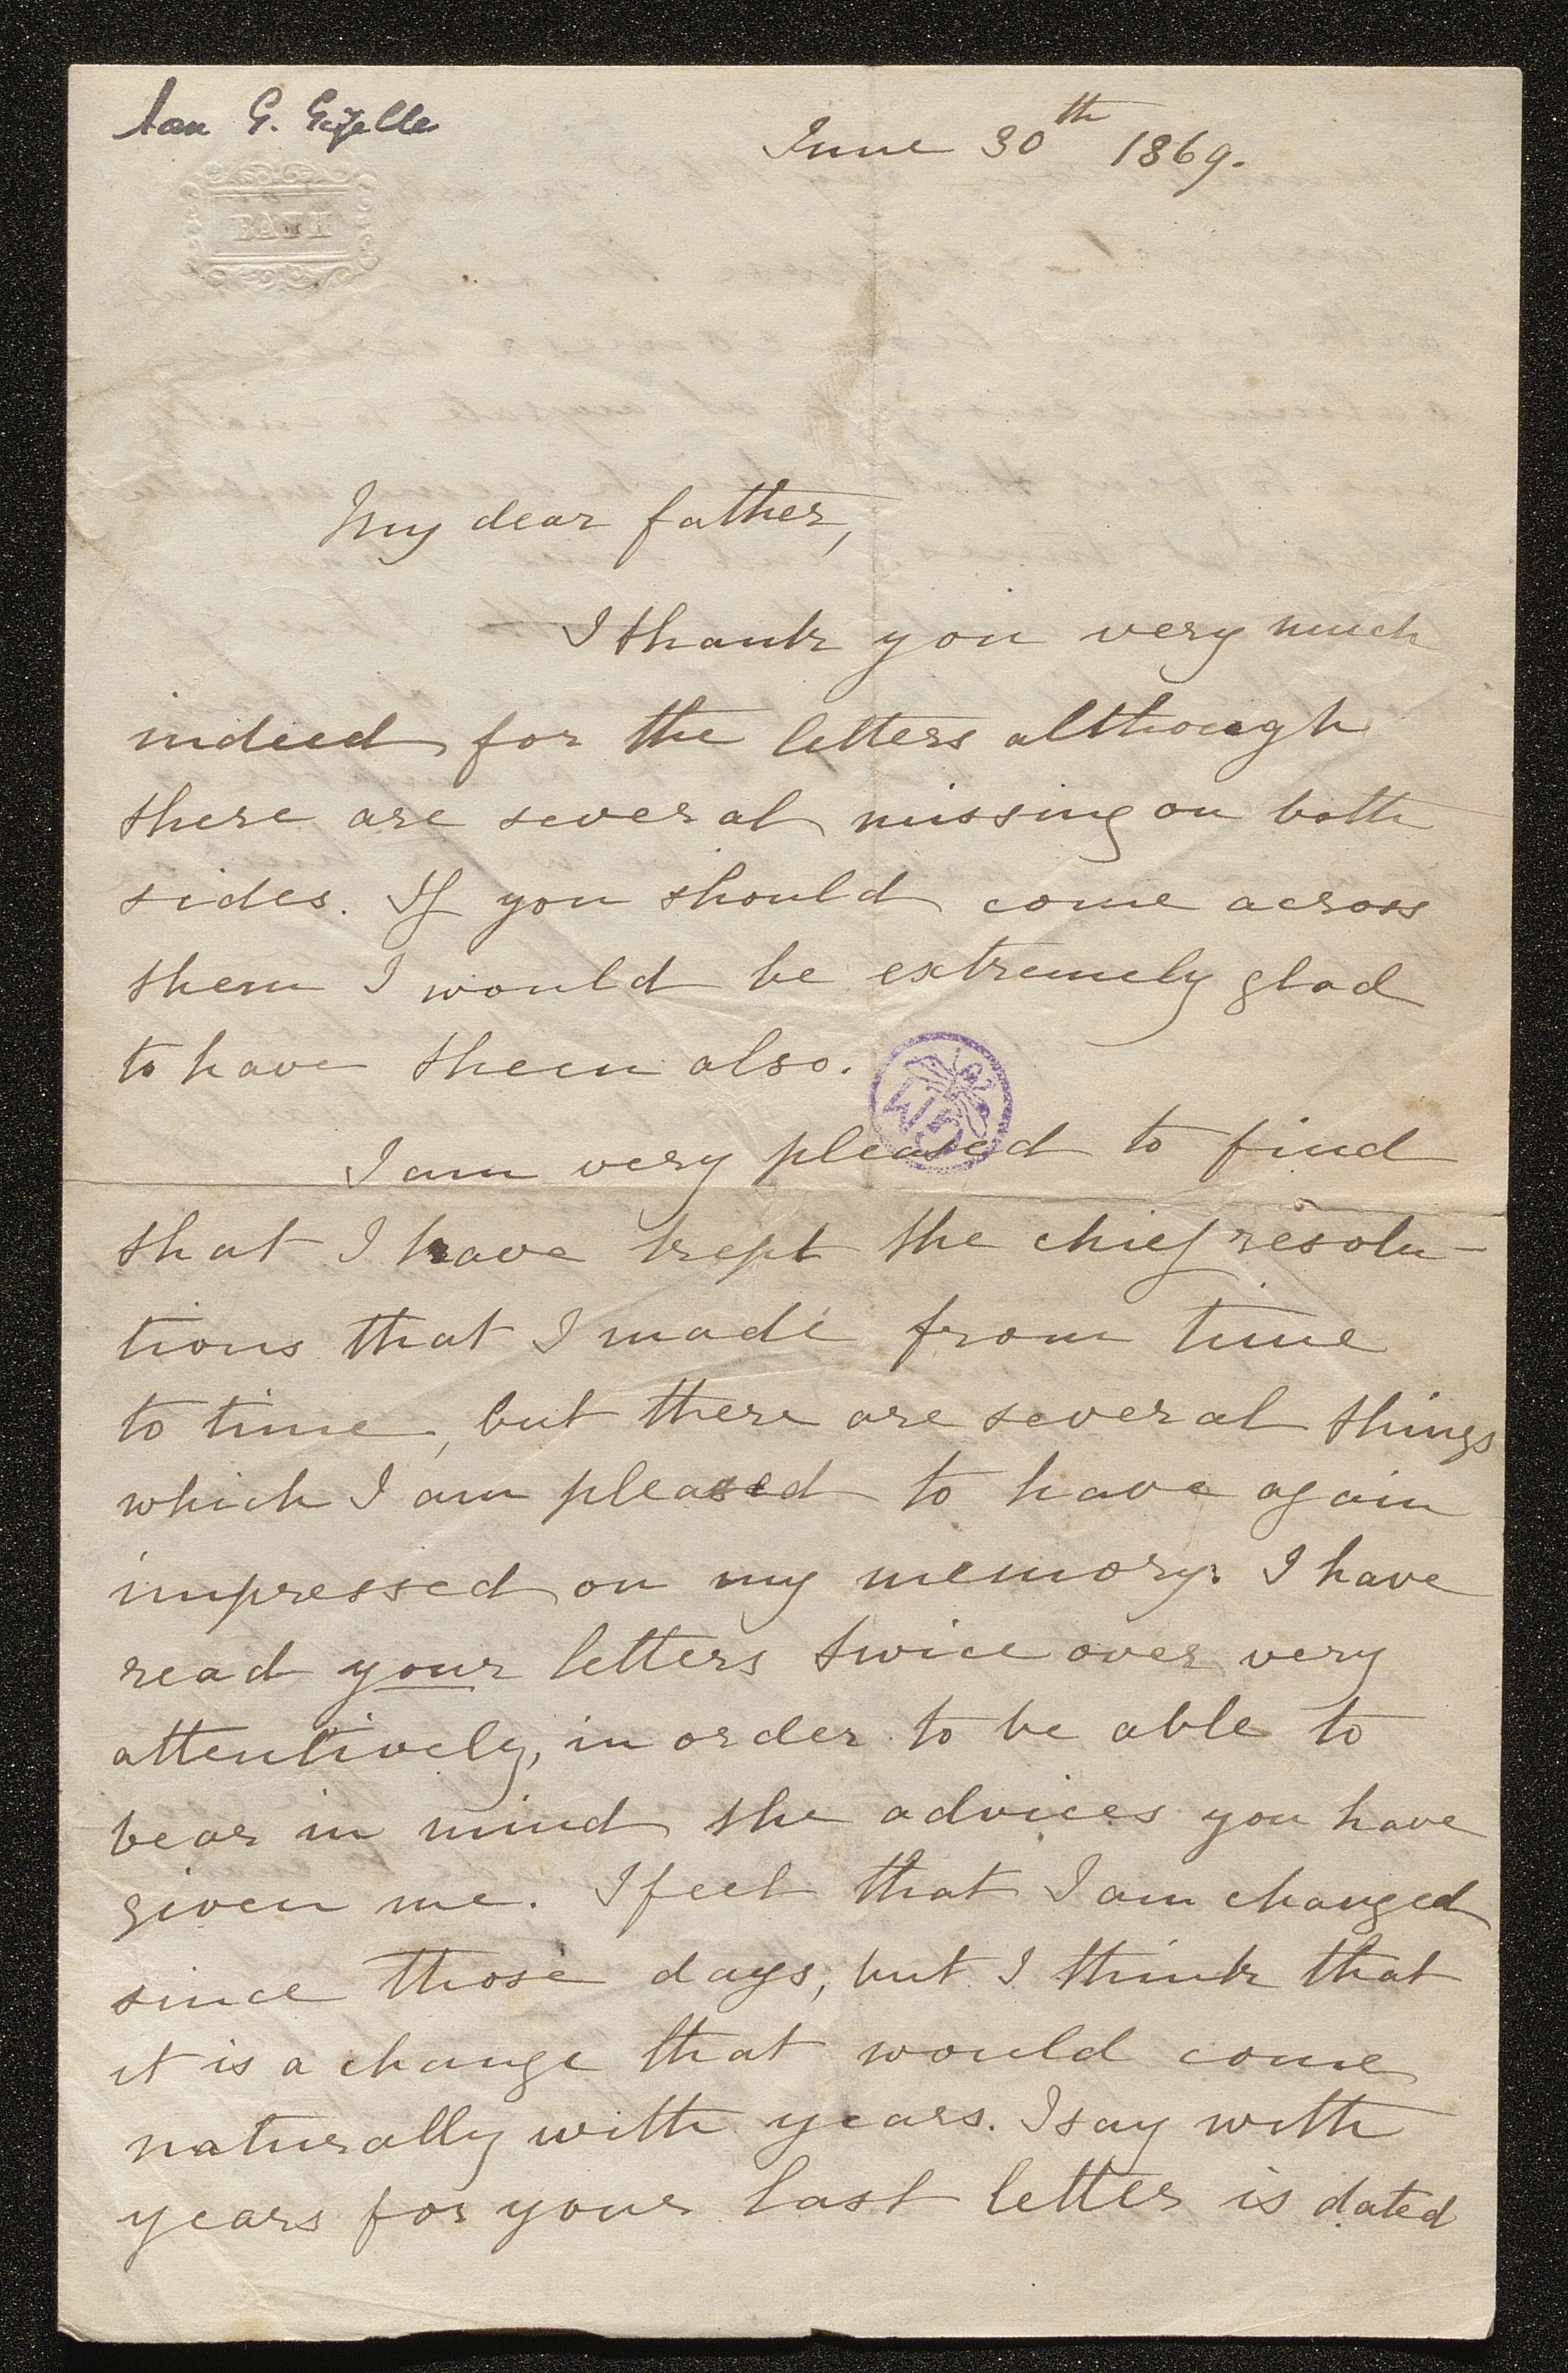 Aan G. Gezelle
June 30th 1869.
BATH
My dear father,
I thank you very much
indeed for the letters although
there are several missing on both
sides. If you should come across
them I would be extremely glad
to have them also.
I am very pleased to find
that I have kept the chief resolu-
tions that I made from time
to time, but there are several things
which I am pleased to have again
impressed on my memory. I have
read your letters twice over very
attentively, in order to be able to
bear in mind the advices you have
given me. I feel that I am changed
since those days, but I think that
it is a change that would come
naturally with years. I say with
years for your last letter is dated